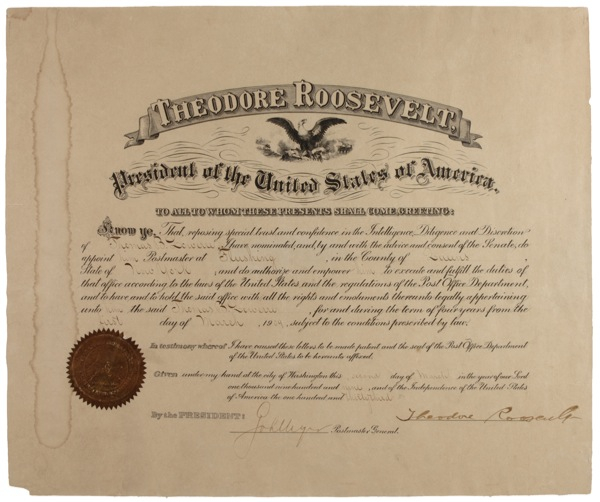 THEODORE ROOSEVELT,
President of the United States of America.
TO ALL TO WHOM THESE PRESENTS SHALL COME, GREETING:
Know ye, That, reposing special trust and confidence in the Intelligence, Diligence and Discretion
of Thomas B. Lowerre, I have nominated, and, by and with the advice and consent of the Senate, do
appoint him Postmaster at Flushing, in the County of Queens
State of New York, and do authorize and empower him to execute and fulfill the duties of
that office according to the laws of the United States and the regulations of the Post Office Department,
and to have and to hold the said office with all the rights and emoluments thereunto legally appertaining
unto him the said Thomas B. Lowerre, for and during the term of four years from the
day of March, 19, subject to the conditions prescribed by law.
In testimony whereof I have caused these letters to be made patent and the seal of the Post Office Department
of the United States to be hereunto affixed.
Given under my hand at the city of Washington this second day of March, in the year of our Lord
one thousand nine hundred and nine, and of the Independence of the United States
of America the one hundred and thirty third.
By the PRESIDENT:
Theodore Roosevelt
Postmaster General.